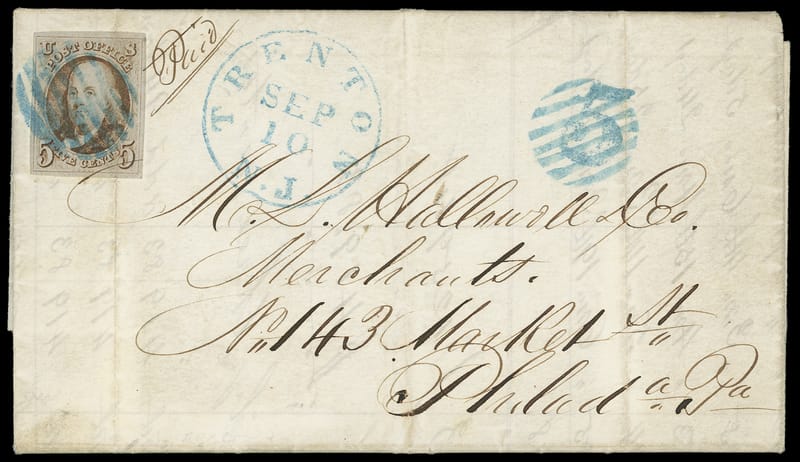 U S
POST OFFICE
FIVE CENTS
5 5
Paid
TRENTON
N.J.
SEP
10
5
M. L. Hallowell & Co.
Merchants.
No. 143 Market St.
Philada. Pa